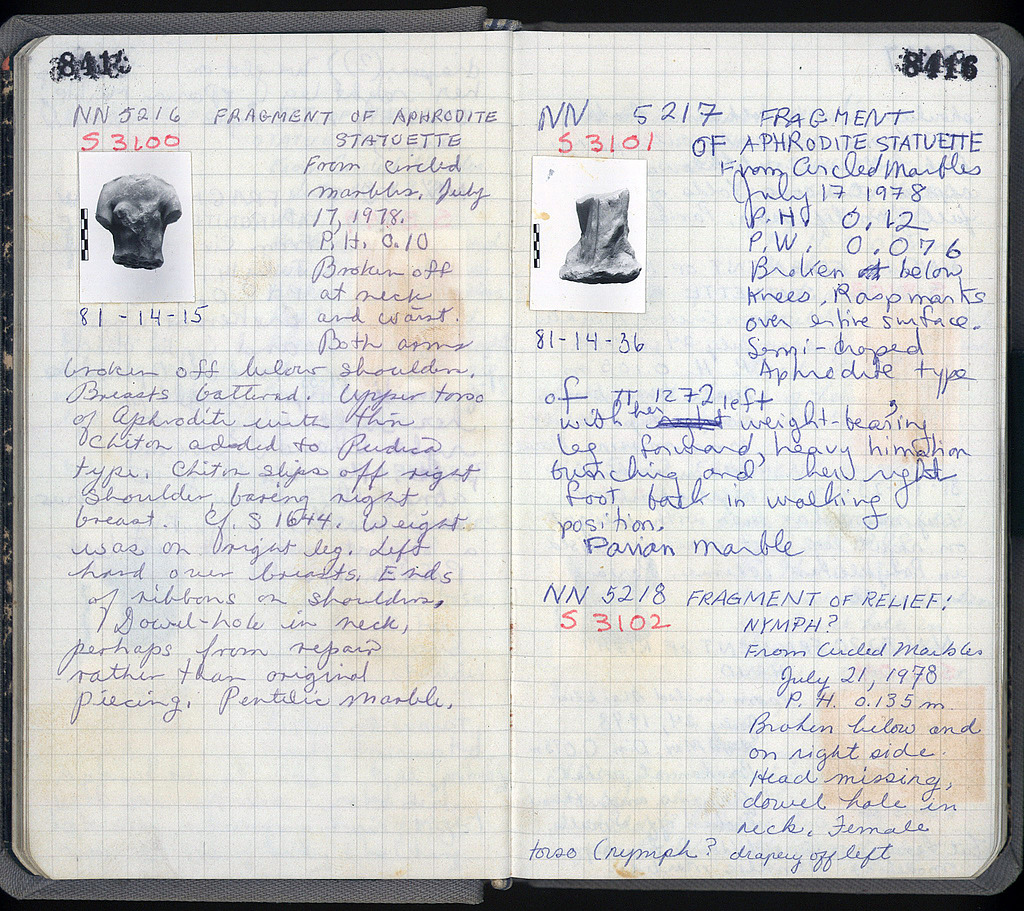 8415
NN 5216 FRAGMENT OF APHRODITE
S 3100 STATUETTE
From circled
marbles, July
17, 1978.
P.H. 0.10
Broken off
at neck
and waist.
Both arms
81-14-15
broken off below shoulders.
Breasts battered. Upper torso
of Aphrodite with thin
Chiton added to Pudica
type. Chiton slips off right
shoulder, baring right
breast. Cf. S 1644. Weight
was on right leg. Left
hand over breasts. Ends
of ribbons on shoulders.
Dowel-hole in neck,
perhaps from repair
rather than original
piecing. Pentelic marble.
8416
NN 5217 FRAGMENT
S 3101 OF APHRODITE STATUETTE
From Circled Marbles
July 17 1978
P.H. 0.12
P.W. 0.076
Broken below
knees. Rasp marks
over entire surface.
81-14-36
Semi-draped
Aphrodite type
of π 1272 left
with her weight-bearing
leg forward, heavy himation
bunching and her right
foot back in walking
position.
Parian marble
NN 5218 FRAGMENT OF RELIEF:
S 3102 NYMPH?
From Circled Marbles
July 21, 1978
P. H. 0.135 m.
Broken below and
on right side.
Head missing,
dowel hole in
neck. Female
torso (nymph? drapery off left